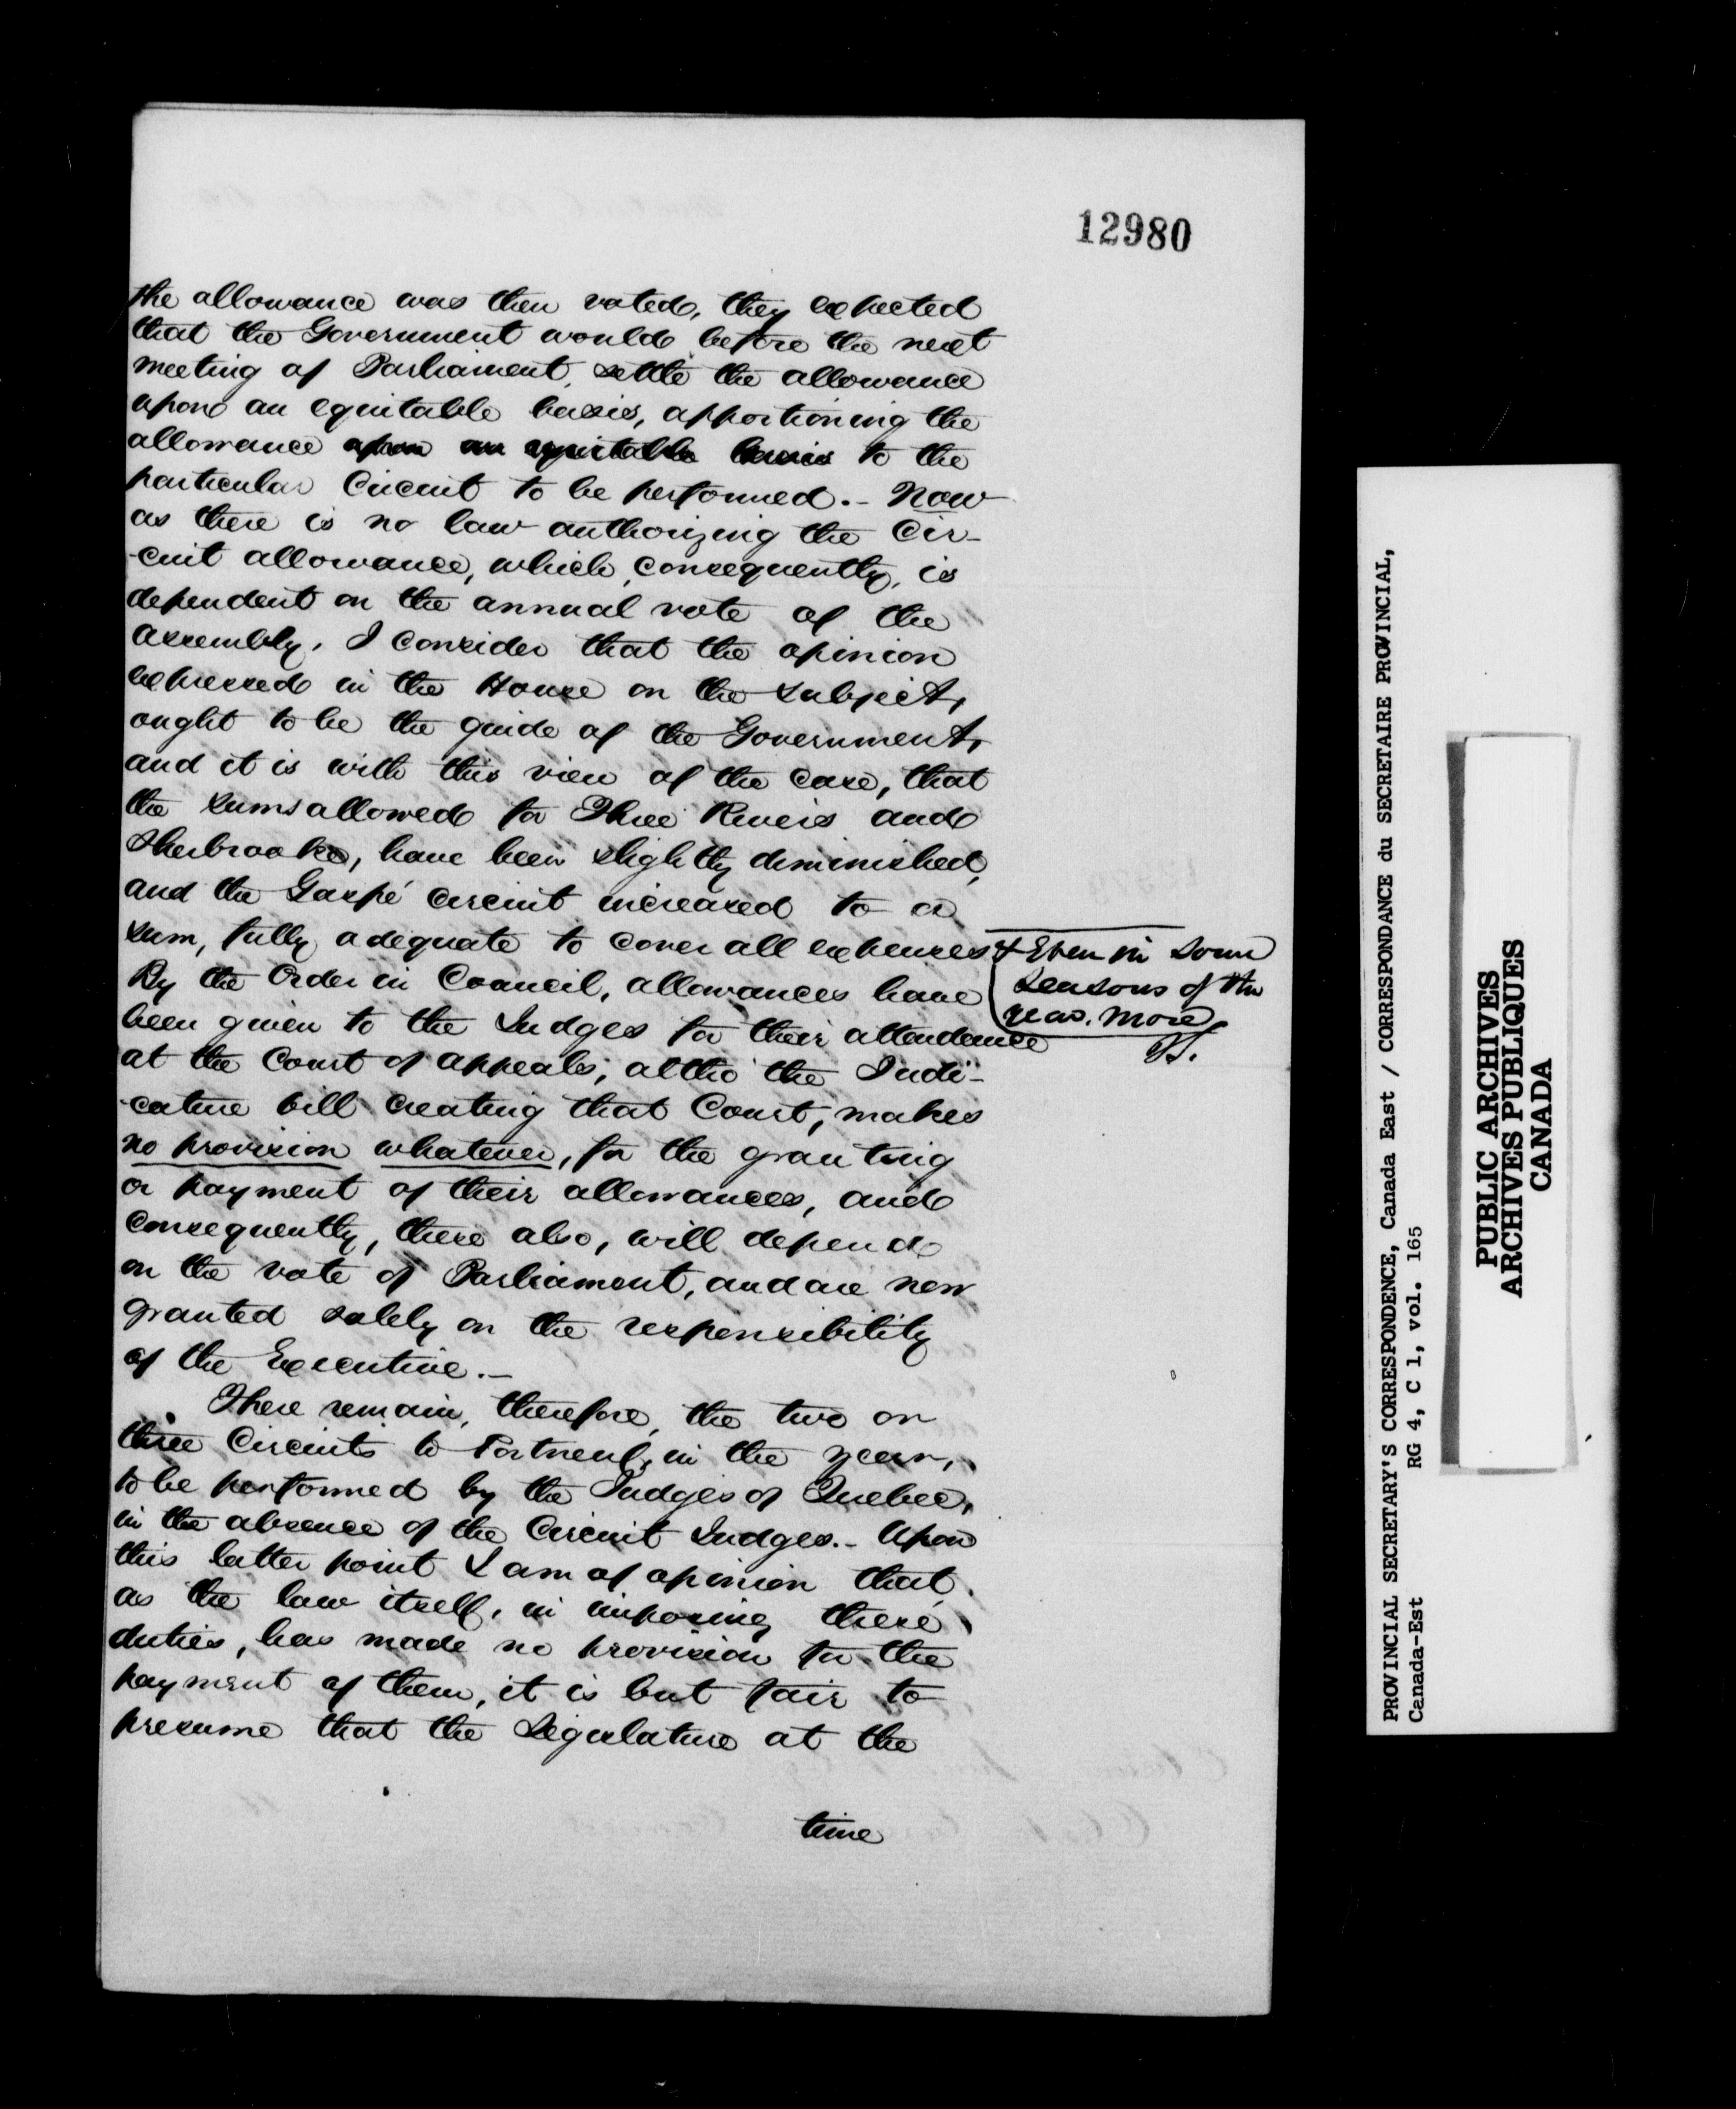 12980
the allowance was then voted, they expected
that the Government would before the next
meeting of Parliament, settle the allowance
upon an equitable basis, apportioning the
allowance upon an equitable basis to the
particular Circuit to be performed.- Now
as there is no law authorizing the Cir-
-cuit allowance, which, consequently, is
dependent on the annual vote of the
Assembly, I consider that the opinion
expressed in the House on the subject,
ought to be the guide of the Government,
and it is with this view of the case, that
the sums allowed for Three Rivers and
Sherbrooke, have been slightly diminished,
and the Gaspé circuit increased to a
sum, fully adequate to cover all expenses +
+ Even in some
seasons of the
year. more
By the Order in Council, allowances have
been given to the Judges for their attendance
at the Court of Appeals; altho' the Judi-
-cature bill creating that Court, makes
no provision whatever, for the granting
or payment of their allowances, and
consequently, these also, will depend
on the vote of Parliament, and are now
granted solely on the responsibility
of the Executive.-
There remain, therefore, the two or
three Circuits to Portneuf, in the year,
to be performed by the Judges of Quebec,
in the absence of the Circuit Judges.- Upon
this latter point I am of opinion that,
as the law itself, in imposing these
duties, has made no provision for the
payment of them, it is but fair to
presume that the Legislature at the
time
PROVINCIAL SECRETARY'S CORRESPONDENCE, Canada East / CORRESPONDANCE du SECRETAIRE PROVINCIAL,
Canada-Est RG 4, C 1, vol. 165
PUBLIC ARCHIVES
ARCHIVES PUBLIQUES
CANADA